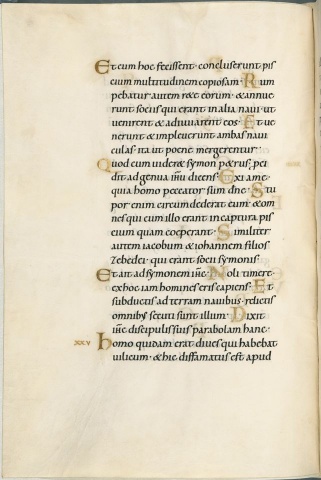 Et cum hoc fecissent· concluserunt pis
cium multitudinem copiosam· Rum
pebatur autem rete eorum· & annue
runt sociis qui erant in alia navi· ut
venirent & adiuvarent eos· Et ve
nerunt & impleverunt ambas navi
culas· ita ut poene mergerentur·
Quod cum videre& symon p&rus, pei
dit ad genua ihu dicens· Exi a me·
quia homo peccator sum dne· Stu
por enim circumdederat eum· & om
nes qui cum illo erant in captura pis
cium quam coeperant· Similiter
autem iacobum & iohannem filios
Zebedei· qui erant socii symonis·
Et ait ad symonem ihc· Noli timere·
ex hoc iam homines eris capiens· Et
subductis ad terram navibus· relictis
omnibus secuti sunt illum· Dixit
ihc discipulis suis parabolam hanc·
XXV homo quidam erat dives qui habebat
vilicum· & hic diffamatus est apud